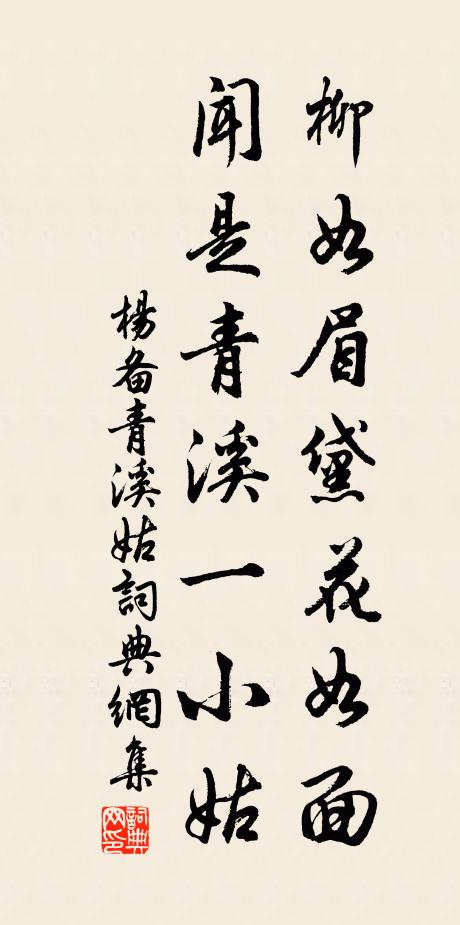 柳如眉黛花如面
聞是青溪一小姑
楊备青溪姑詞典網集
詞典网印